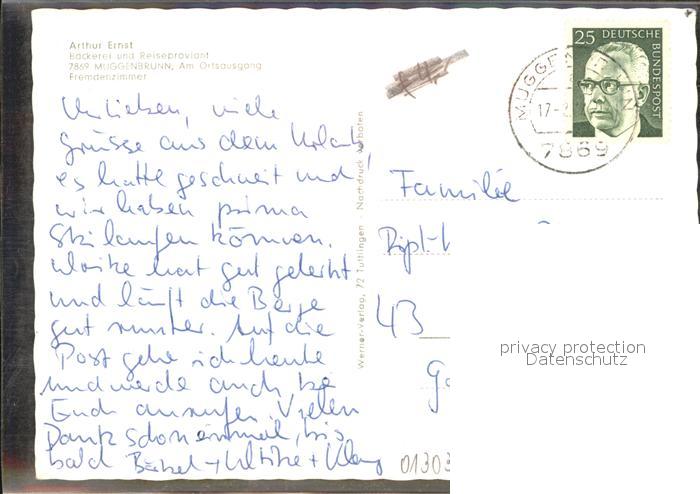 Arthur Ernst
Bäckerei und Reiseproviant
7869 MUGGENBRUNN, Am Ortsausgang
Fremdenzimmer
Ihr Lieben, viele
Grüsse aus dem Urlaub,
es hatte geschneit und
wir haben prima
Skilaufen können.
Ulrike hat gut gelernt
und läuft die Berge
gut runter. Auf die
Post gehe ich heute
und werde auch bei
Euch anrufen. Vielen
Dank schon einmal, bis
bald Bärbel + Ulrike + Klaus
Werner-Verlag, 72 Tuttlingen · Nachdruck verboten
25 DEUTSCHE BUNDESPOST
17-
7869
Familie
43
privacy protection
Datenschutz